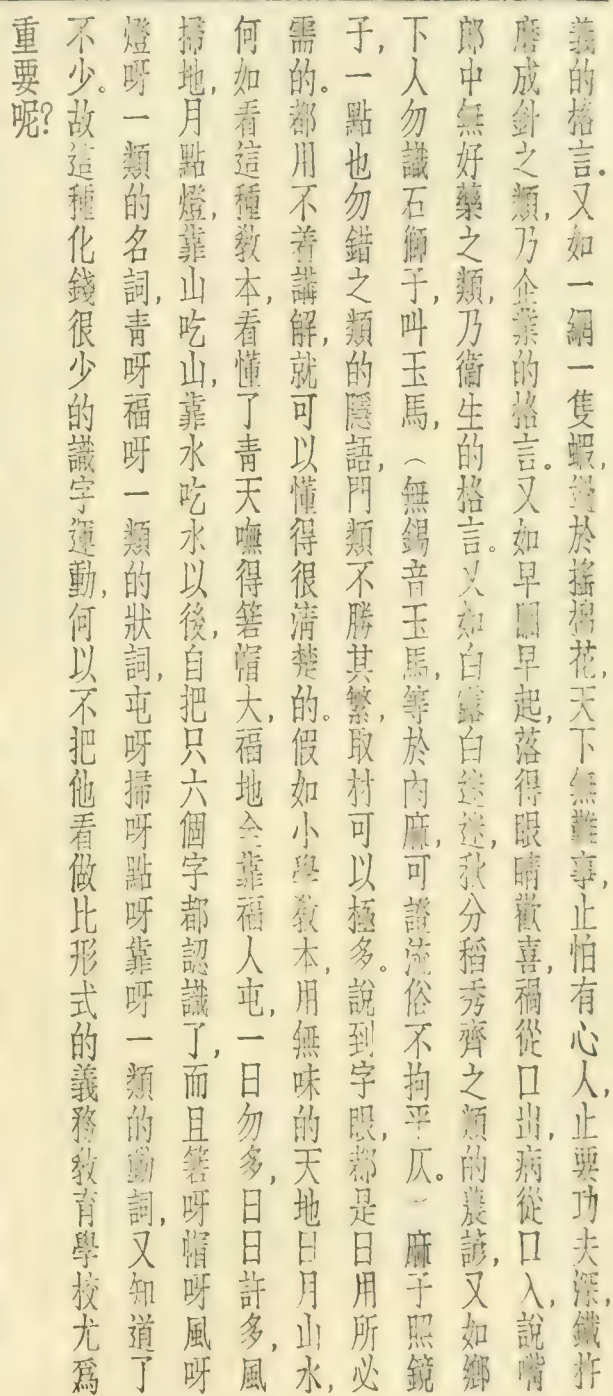 義的格言。又如一網一隻蝦,勝於搖棉花,天下無難事,止怕有心人,止要功夫深,鐵杵
磨成針之類,乃企業的格言。又如早眠早起,落得眼睛歡喜,禍從口出,病從口入,說嘴
郎中無好藥之類,乃衞生的格言。又如白露白迷迷,秋分稻秀齊之類的農諺,又如鄉
下人勿識石獅子,叫玉馬,(無錫音玉馬,等於肉麻,可證流俗不拘平仄。)麻子照鏡
子,一點也勿錯之類的隱語,門類不勝其繁,取材可以極多。說到字眼,都是日用所必
需的。都用不着講解,就可以懂得很淸楚的。假如小學敎本,用無味的天地日月山水,
何如看這種敎本,看懂了靑天嘸得箬帽大,福地全靠福人屯,一日勿多,日日許多,風
掃地,月點燈,靠山吃山,靠水吃水以後,自把只六個字都認識了,而且箬呀帽呀風呀
燈呀一類的名詞,靑呀福呀一類的狀詞,屯呀掃呀點呀靠呀一類的動詞,又知道了
不少。故這種化錢很少的識字運動,何以不把他看做比形式的義務敎育學校尤爲
重要呢?